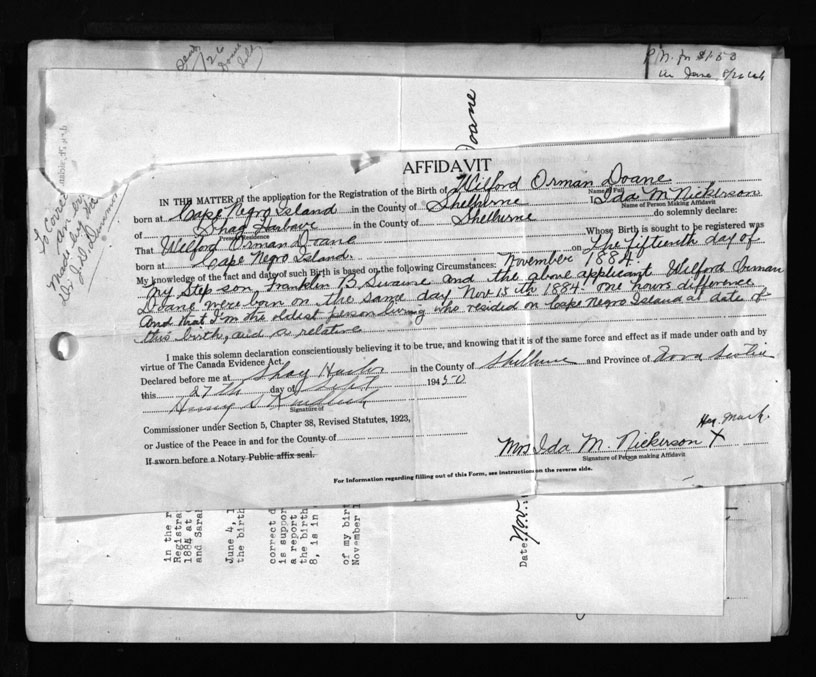 P.M. for $1.50
AFFIDAVIT
IN THE MATTER of the application for the Registration of the Birth of Wilford Orman Doane
Name in Full
born at Cape Negro Island in the County of Shelburne I Ida M Nickerson
Name of Person Making Affidavit
of Shag Harbour in the County of Shelburne do solemnly declare:
Residence
That Wilford Orman Doane Whose Birth is sought to be registered was
born at Cape Negro Island. on The fifteenth day of
My knowledge of the fact and date of such Birth is based on the following Circumstances: November 1884.
My Step son Franklin B Swaine and the above applicant Wilford Orman
Doane were born on the same day Nov. 15th 1884. one hours difference
And that I'm the oldest person living who resided on Cape Negro Island at date of
this birth, and a relative
I make this solemn declaration conscientiously believing it to be true, and knowing that it is of the same force and effect as if made under oath and by
virtue of The Canada Evidence Act.
Declared before me at Shag Harbor in the County of Shelburne and Province of Nova Scotia
this 27th day of 1950
Signature of
Commissioner under Section 5, Chapter 38, Revised Statutes, 1923,
or Justice of the Peace in and for the County of
If sworn before a Notary Public affix seal.
Her Mark
Mrs Ida M. Nickerson X
Signature of Person making Affidavit
For Information regarding filling out of this Form, see instruction on the reverse side.
Doane
in the r
Registra
1885 at
and Sarah
June 4, 1
the birth
correct d
is suppor
a report
the birth
8, is in
of my bir
November
Date Nov.